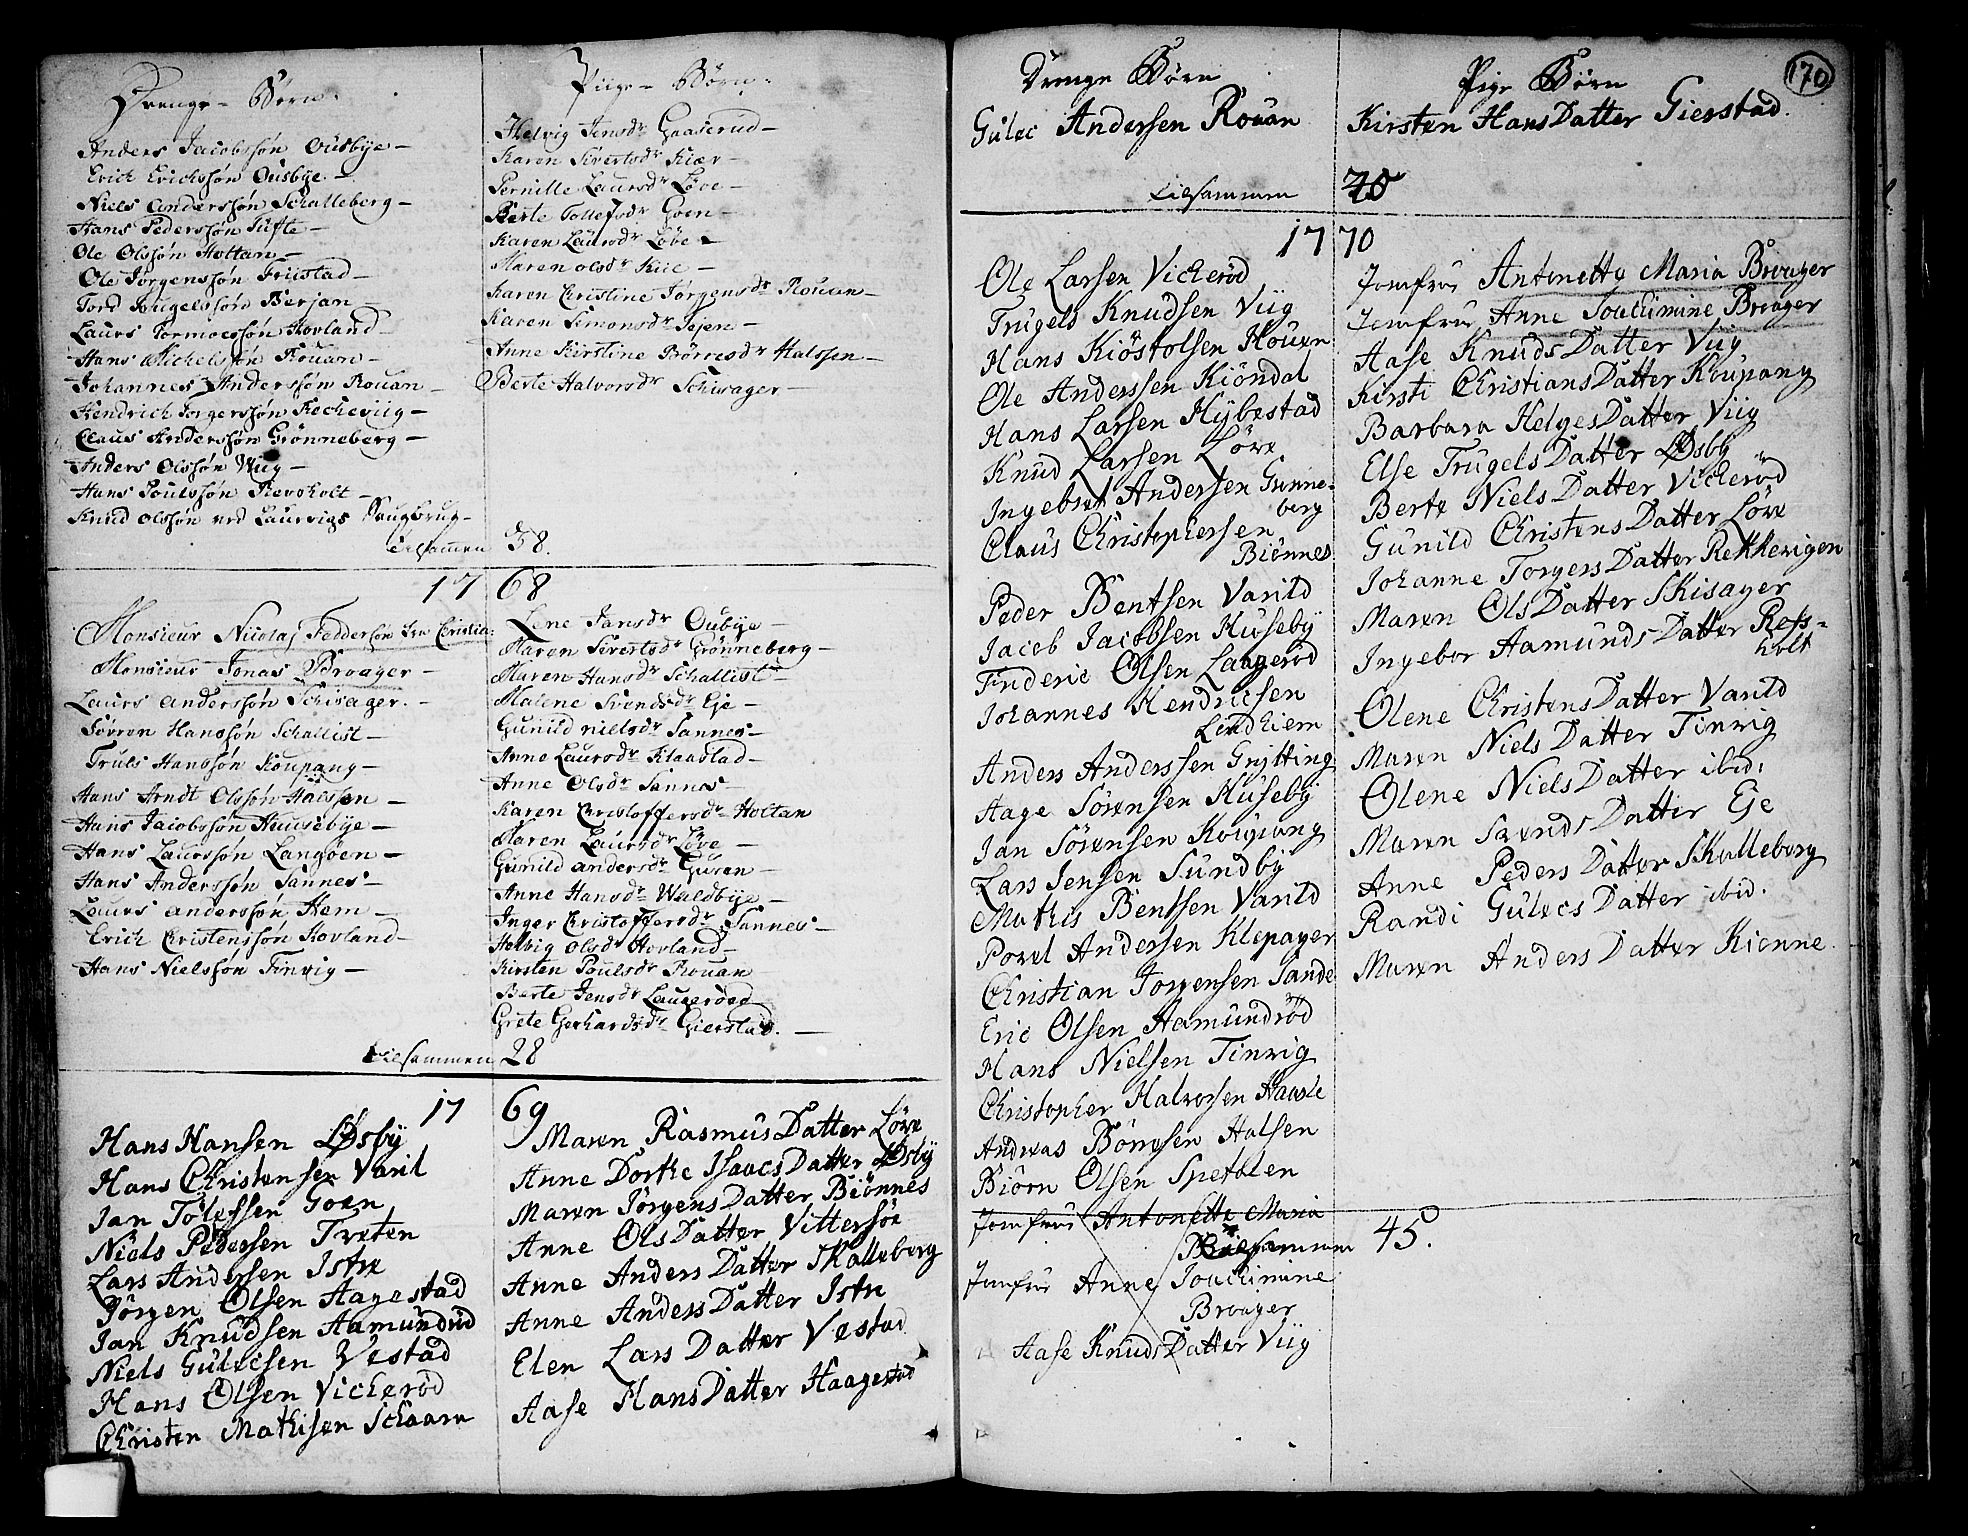 Drenge - Børn.
Anders Jacobssøn Ousbye -
Erich Erichssøn Ousbye -
Niels Anderssøn Schalleberg -
Hans Pederssøn Tufte -
Ole Olssøn Holtan -
Ole Jørgenssøn Friistad -
Tord Engelssøn Berjan -
Laurs Tormoessøn Hovland -
Hans Michelssøn Rouan -
Johannes Anderssøn Rouan -
Hendrich Torgerssøn Recheviig -
Claus Anderssøn Grønneberg -
Anders Olssøn Viig -
Hans Poulssøn Revoholt -
Knud Olssøn ved Laurvigs Saugbrug -
Piige - Børn.
Helvig Jensdr Gaaserud -
Karen Sivertsdr Kiær -
Pernille Laursdr Løve -
Berte Tollefsdr Goen -
Karen Laursdr Løve -
Maren Olsdr Kiie -
Karen Christine Jørgensdr Rouan -
Karen Simonsdr Jejen -
Anne Kirstine Børresdr Halssen -
Berte Halvorsdr Schisager -
tilsamen 38.
1768
Monsieur Nicolaj Feddersøn fra Christia:
Monsieur Jonas Broager -
Laurs Anderssøn Schisager. -
Sørren Hanssøn Schallist -
Truls Hanssøn Koupang -
Hans Arndt Olssøn Halssen -
Hans Jacobssøn Huusebye -
Hans Laurssøn Langøen -
Hans Anderssøn Sannes -
Laurs Anderssøn Hem -
Erich Christenssøn Hovland -
Hans Nielssøn Tinvig -
Lene Jansdr Oubye -
Maren Sivertsdr Grønneberg -
Maren Hansdr Schallist -
Malene Svendsdr Eje -
Gunild Nielsdr Sannes -
Anne Laursdr Klaastad -
Anne Olsdr Sannes -
Karen Christoffersdr Holtan
Maren Laursdr Løve -
Gunild Andersdr Guren -
Anne Hansdr Waldbye -
Inger Christoffersdr Sannes -
Helvig Olsdr Hovland -
Kirsten Poulsdr Rouan
Berte Jensdr Laugerøed
Grete Gerhardsdr Gierstad. -
tilsammen 28
1769
Hans Hansen Øsby
Hans Christensen Varil
Jan Tolefsen Goen
Niels Pedersen Treten
Lars Andersen Istre
Jørgen Olsen Hagestad
Jan Knudsen Aamundrud
Niels Gulecsen Vestad
Hans Olsen Vickerød
Christen Mathisen Schaarn
Maren Rasmus Datter Løve
Anne Dorthe Isaacs Datter Øsby
Maren Jørgens Datter Biønnes
Anne Ols Datter Vittersøe
Anne Anders Datter Skalleberg
Anne Anders Datter Istre
Elen Lars Datter Vestad
Aase Hans Datter Haagestad
170
Drenge Børn
Gulec Andersen Rouan
Pige Børn
Kirsten Hans Datter Gierstad.
tilsammen 20
1770
Ole Larsen Vickerød
Trugels Knudsen Viig
Hans Kiøstolsen Houen
Ole Anderssen Kiøndal
Hans Larsen Hybestad
Knud Larsen Løve
Ingebret Andersen Grønne-
berg
Claus Christophersen
Biønnes
Peder Bentsen Varild
Jacob Jacobsen Huseby
Frideric Olsen Laagerød
Johannes Hendricsen
Lindhiem
Anders Anderssen Grytting
Aage Sørensen Huseby
Jan Sørensen Koupang
Lars Jensen Sundby
Mathis Bentsen Varild
Povel Andersen Klepager
Christian Jørgensen Sande
Eric Olsen Aamundrød
Hans Nielsen Tinvig
Christopher Halvorsen Haavle
Andreas Børresen Halsen
Biørn Olsen Spetalen
Jomfrue Antonette Maria
Jomfrue Anne Joachimine
Broager
Aase Knuds Datter Viig
Jomfrue Antonette Maria Broager
Jomfrue Anne Joachimine Broager
Aase Knuds Datter Viig
Kirsti Christians Datter Koupang
Barbara Helges Datter Viig
Else Trugels Datter Øsby
Berte Niels Datter Vickerød
Gunild Christens Datter Løve
Johanne Torgers Datter Rekkevigen
Maren Ols Datter Skisager
Ingebor Aamunds Datter Refs-
holt
Olene Christens Datter Varild
Maren Niels Datter Tinvig
Olene Niels Datter ibid:
Maren Svends Datter Eje
Anne Peders Datter Skalleberg
Randi Gulecs Datter ibid.
Maren Anders Datter Kiønne.
tilsammen 45.